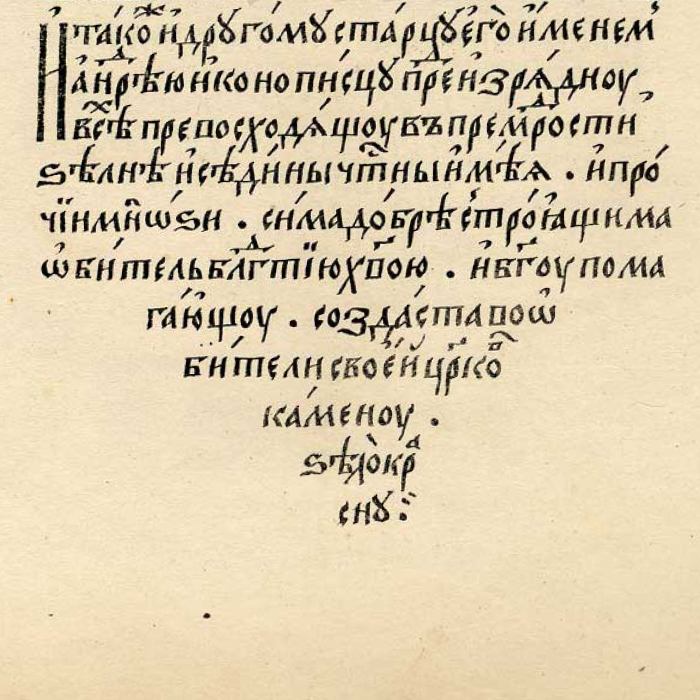 И҆тако́ж и҆дрꙋго́мꙋ ста́рцꙋ є҆го̀ и҆́менемъ
а҆ндрѣ́ю и҆конопи́сцꙋ преи҆зрѧ́дноу
всѣ́хъ превосходѧ́щоу въ премⷣрости
ѕѣ́лнѣ и҆ сѣди́ны чтⷭ҇ны и҆мѣ́ѧ . и҆ про́
чїим мнѡ́ѕи . си́ма до́брѣ стро́ѧщима
ѡ҆би́тель блгⷣтїю хвⷭ҇ою . и҆ бгꙋ поma
га́ющоу . созда́ста во ѡ҆
би́тели свое́й црⷦ҇ковь
ка́меноу .
ѕѣлѡ̀ кра
снꙋ ⁖